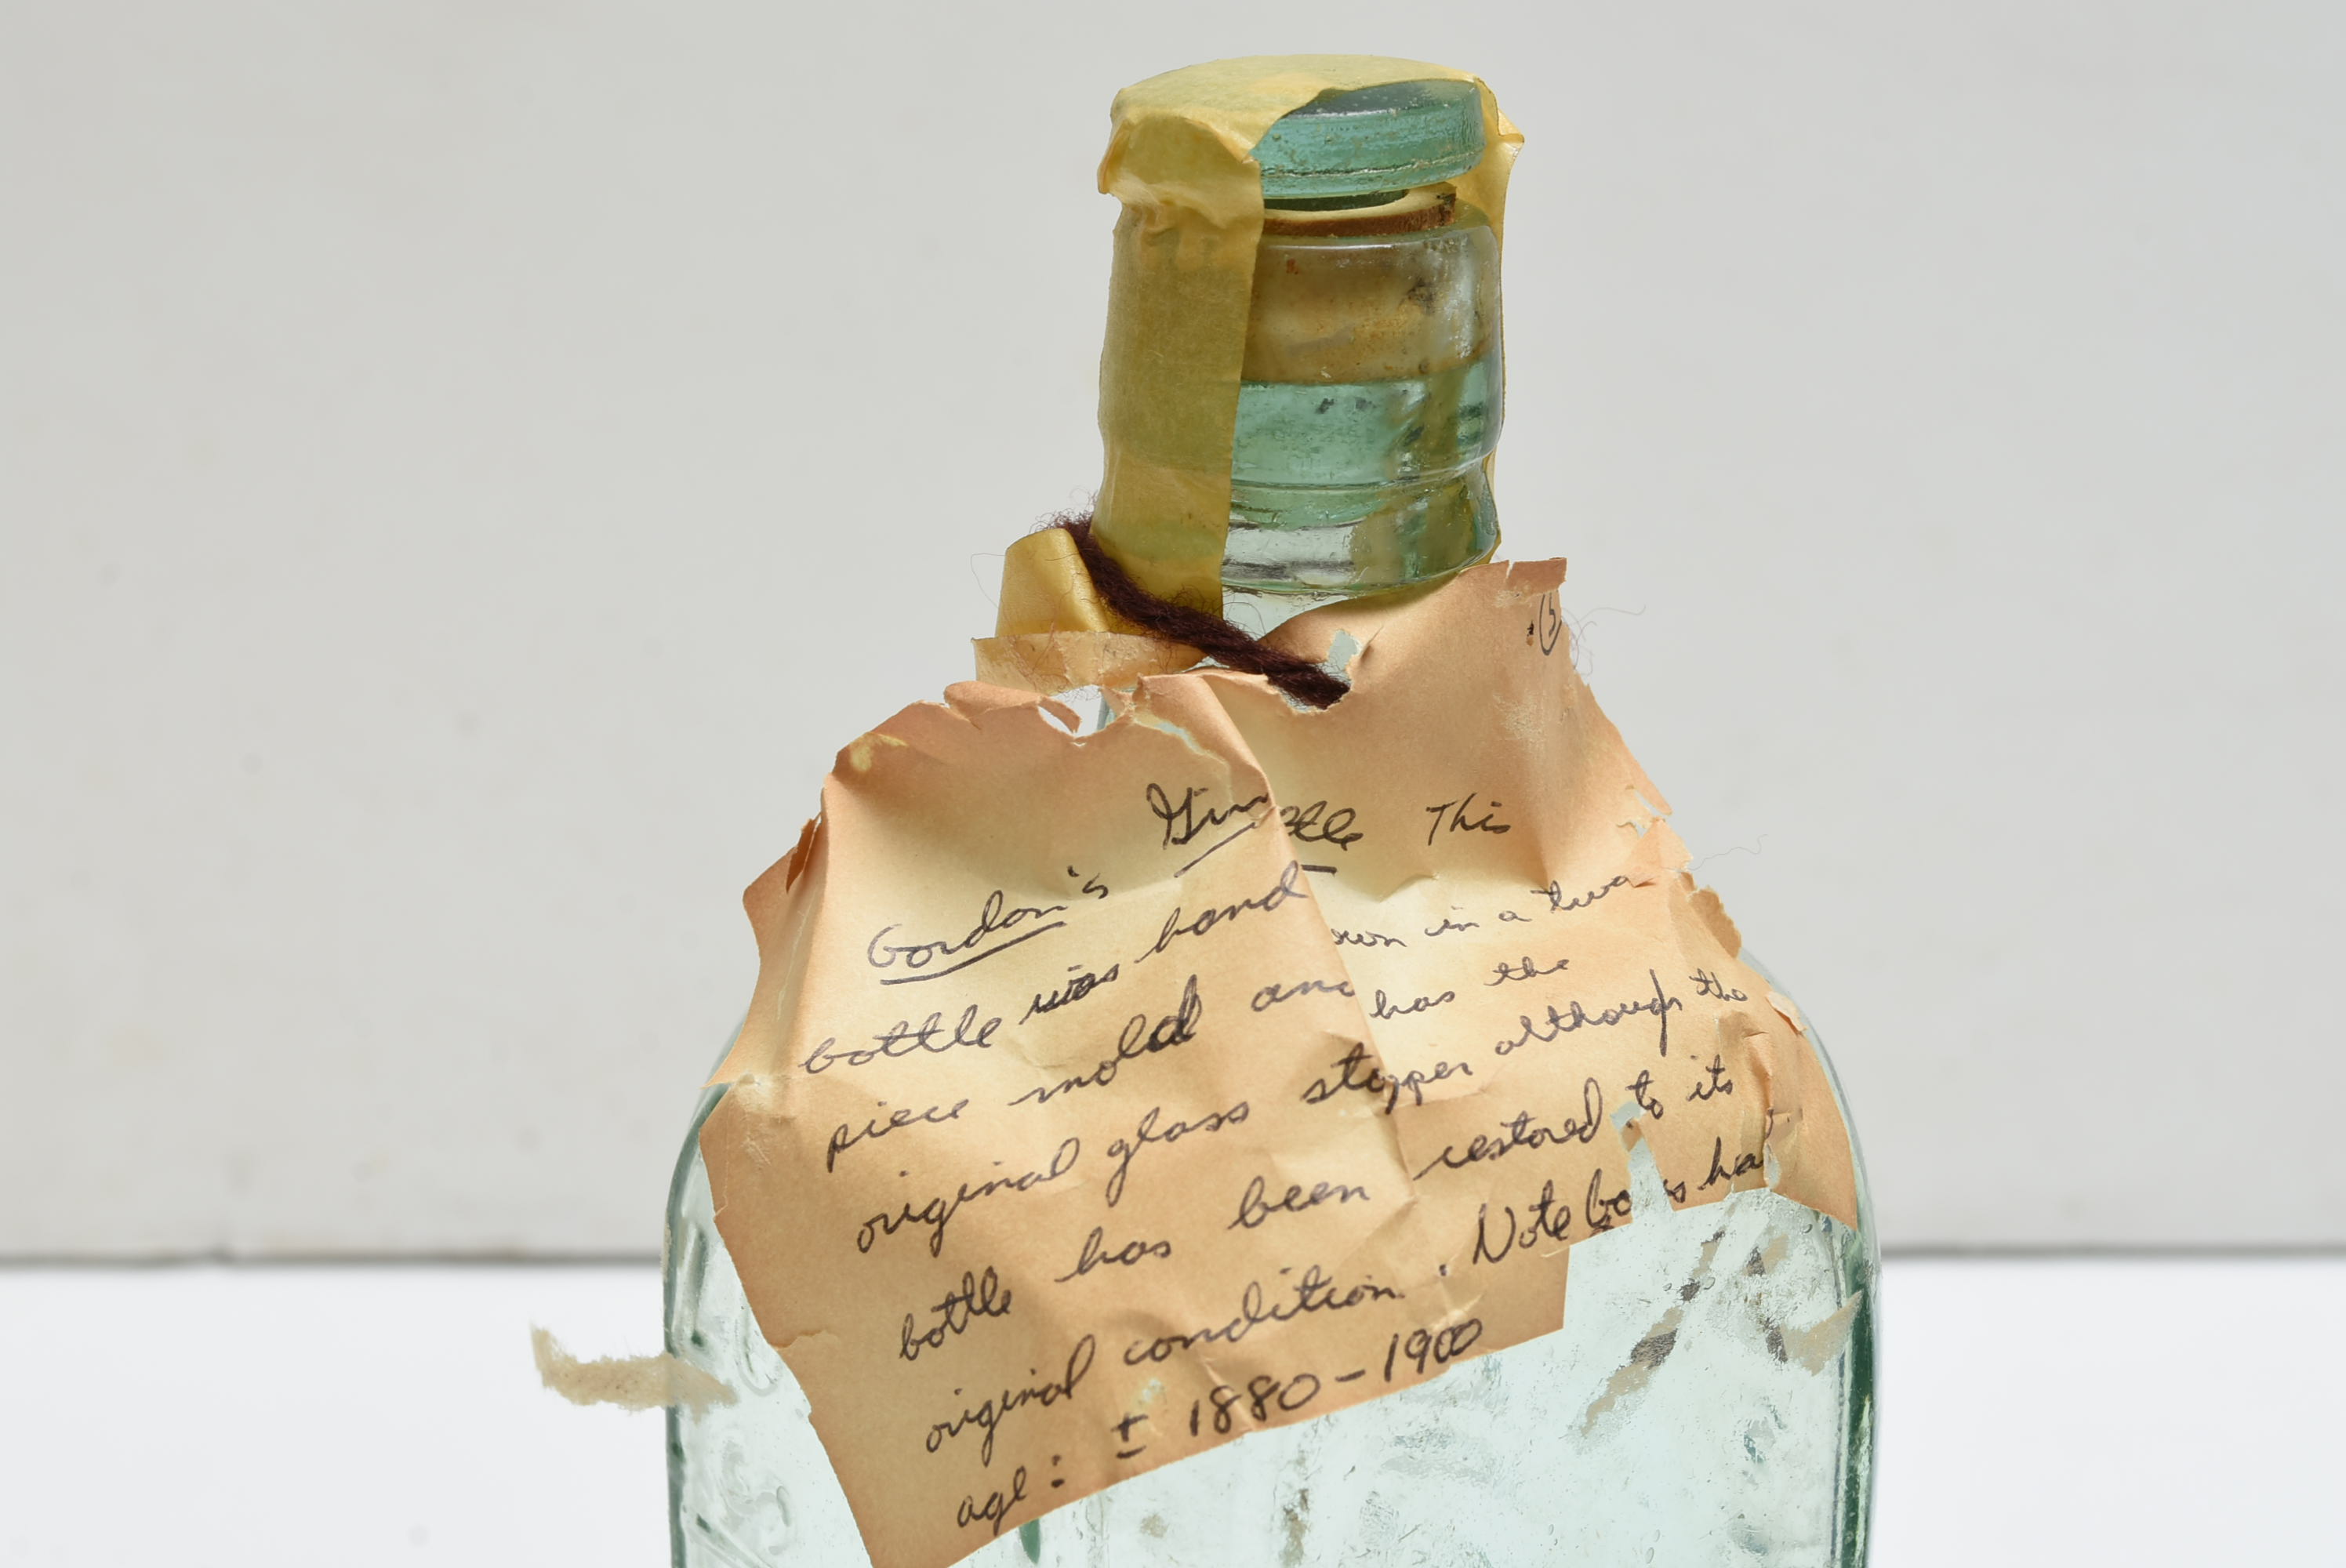 (5)
Gordon's Gin ttle This
bottle was hand own in a two
piece mold and has the
original glass stopper although the
bottle has been restored to its
original condition. Note
age: ± 1880-1900